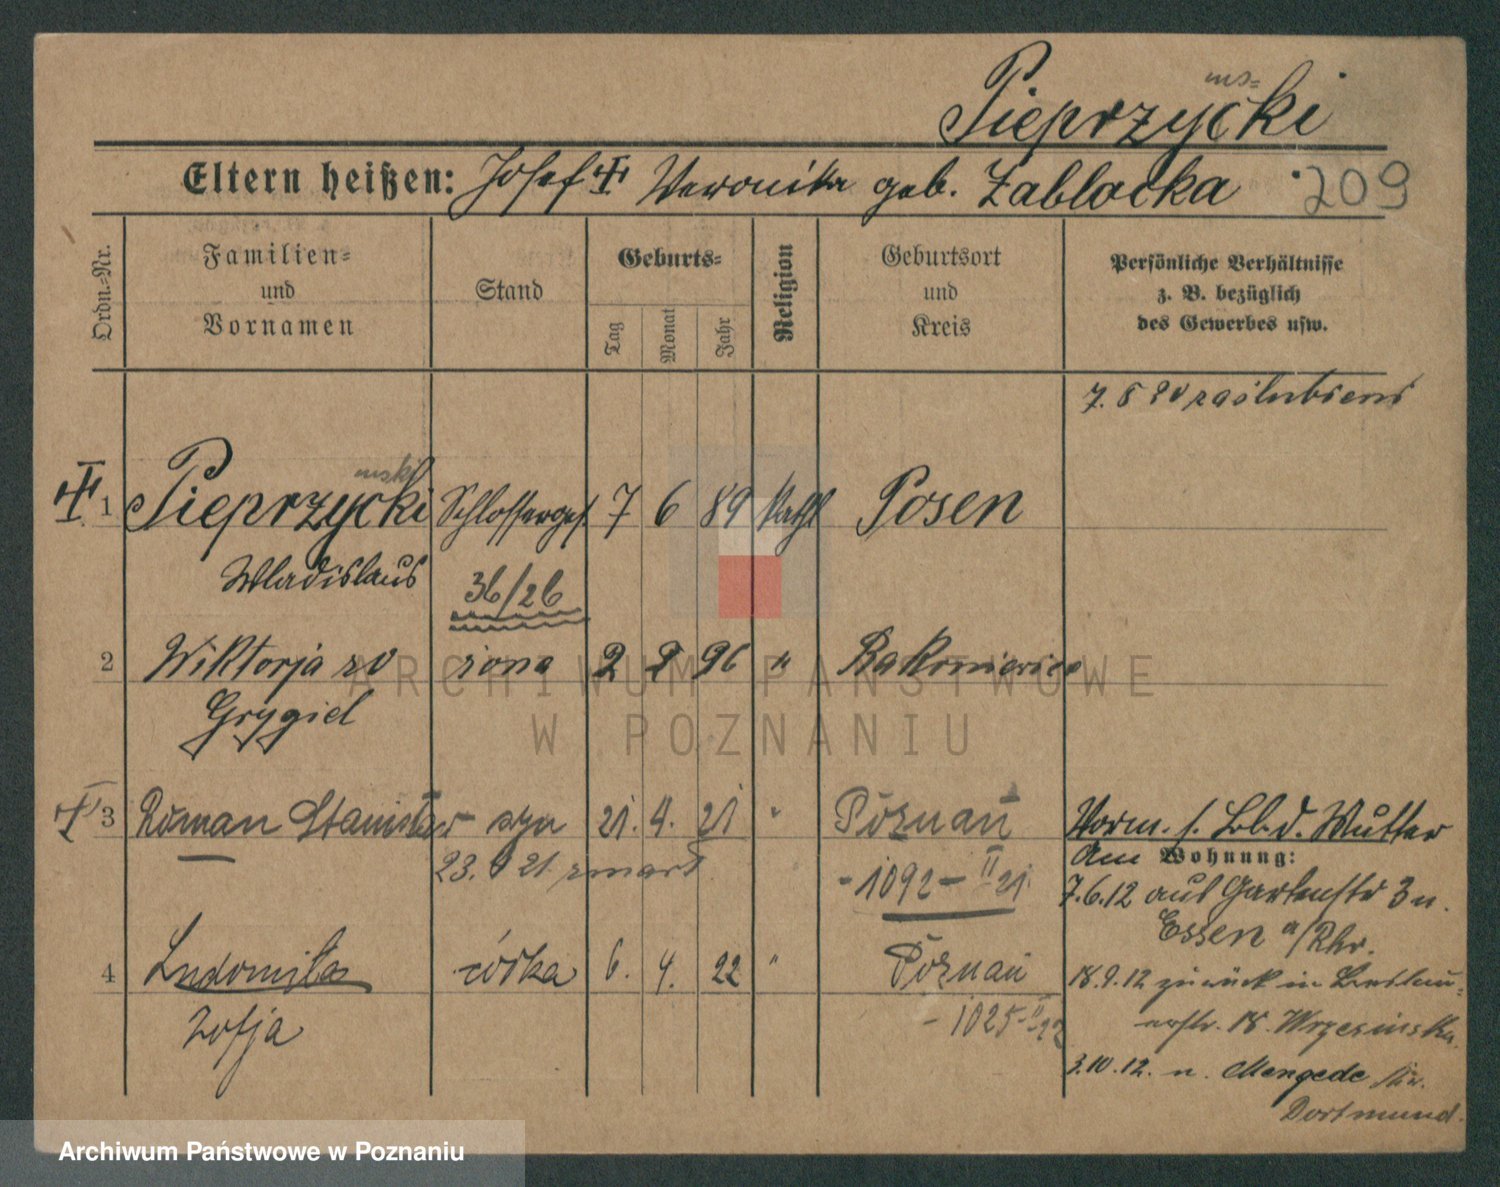 Pieprzycki
ins=
Eltern heißen: Josef Veronika geb. Zablocka 209
Ordn.=Nr.
Familien=
und
Vornamen
Stand
Geburts=
Tag
Monat
Jahr
Religion
Geburtsort
und
Kreis
Persönliche Verhältnisse
z. B. bezüglich
des Gewerbes usw.
7. 8 20
1 Pieprzycki Schlosserges. 7 6 89 kath Posen
inski
Wladislaus
36/26
2 Wiktorja zd żona 2 2 96 " Rakoniewice
Grygiel
3 Roman Stanisław syn 21. 4. 21 " Poznań Vorm. s. Lb. d. Mutter
23. 9 21 zmarł
- 1092 - II 21
Am Wohnung:
7.6.12 aus Gartenstr 3 n.
Essen a/Rhr.
4 Ludomiła córka 6. 4. 22 " Poznań
Zofja
- 1025 - II 22
18.9.12 zurück in Breslau=
erstr. 18. Wrzesinska.
3.10.12. n. Mengede Kr.
Dortmund.
ARCHIWUM PAŃSTWOWE
W POZNANIU
Archiwum Państwowe w Poznaniu